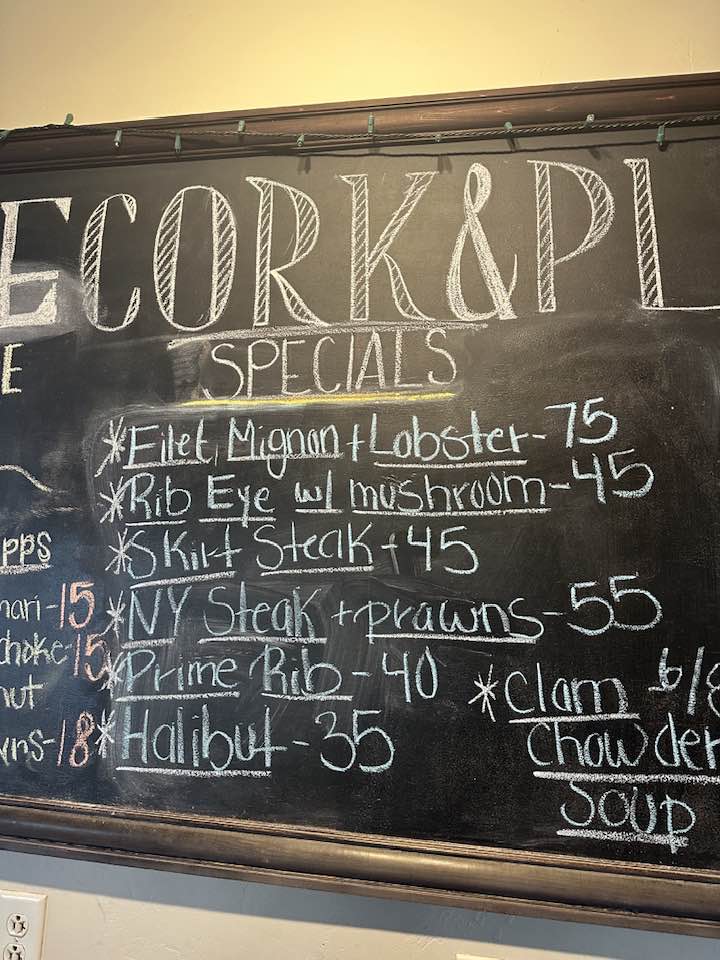 ECORK&PL
SPECIALS
E
*Filet Mignon + Lobster-75
*Rib Eye w/ mushroom-45
*Skirt Steak-45
*NY Steak + prawns-55
*Prime Rib-40
*Halibut-35
*Clam 6/8
chowder
Soup
pps
mari-15
choke-15
nut
wns-18